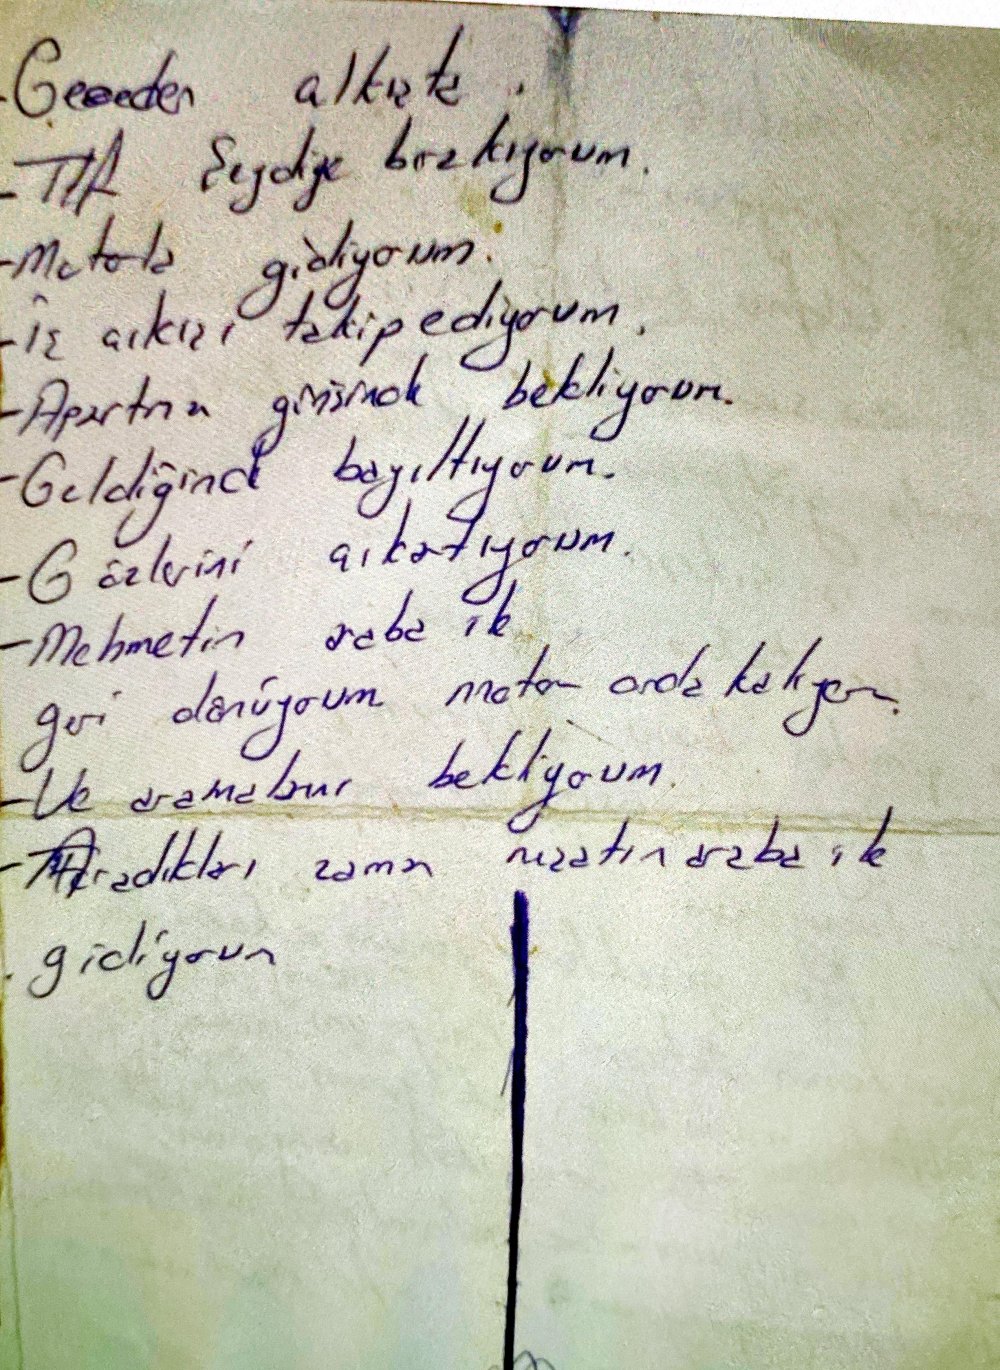 -Geceden alkızta.
-TIR Seydiye bırakıyorum.
-Motorla gidiyorum.
-İş çıkışı takip ediyorum.
-Apartman girişinde bekliyorum.
-Geldiğinde bayıltıyorum.
-Gözlerini çıkartıyorum.
-Mehmetin araba ile
geri dönüyorum motor orda kalıyor.
-Ve aramalarını bekliyorum.
-Aradıkları zaman araba ile
gidiyorum